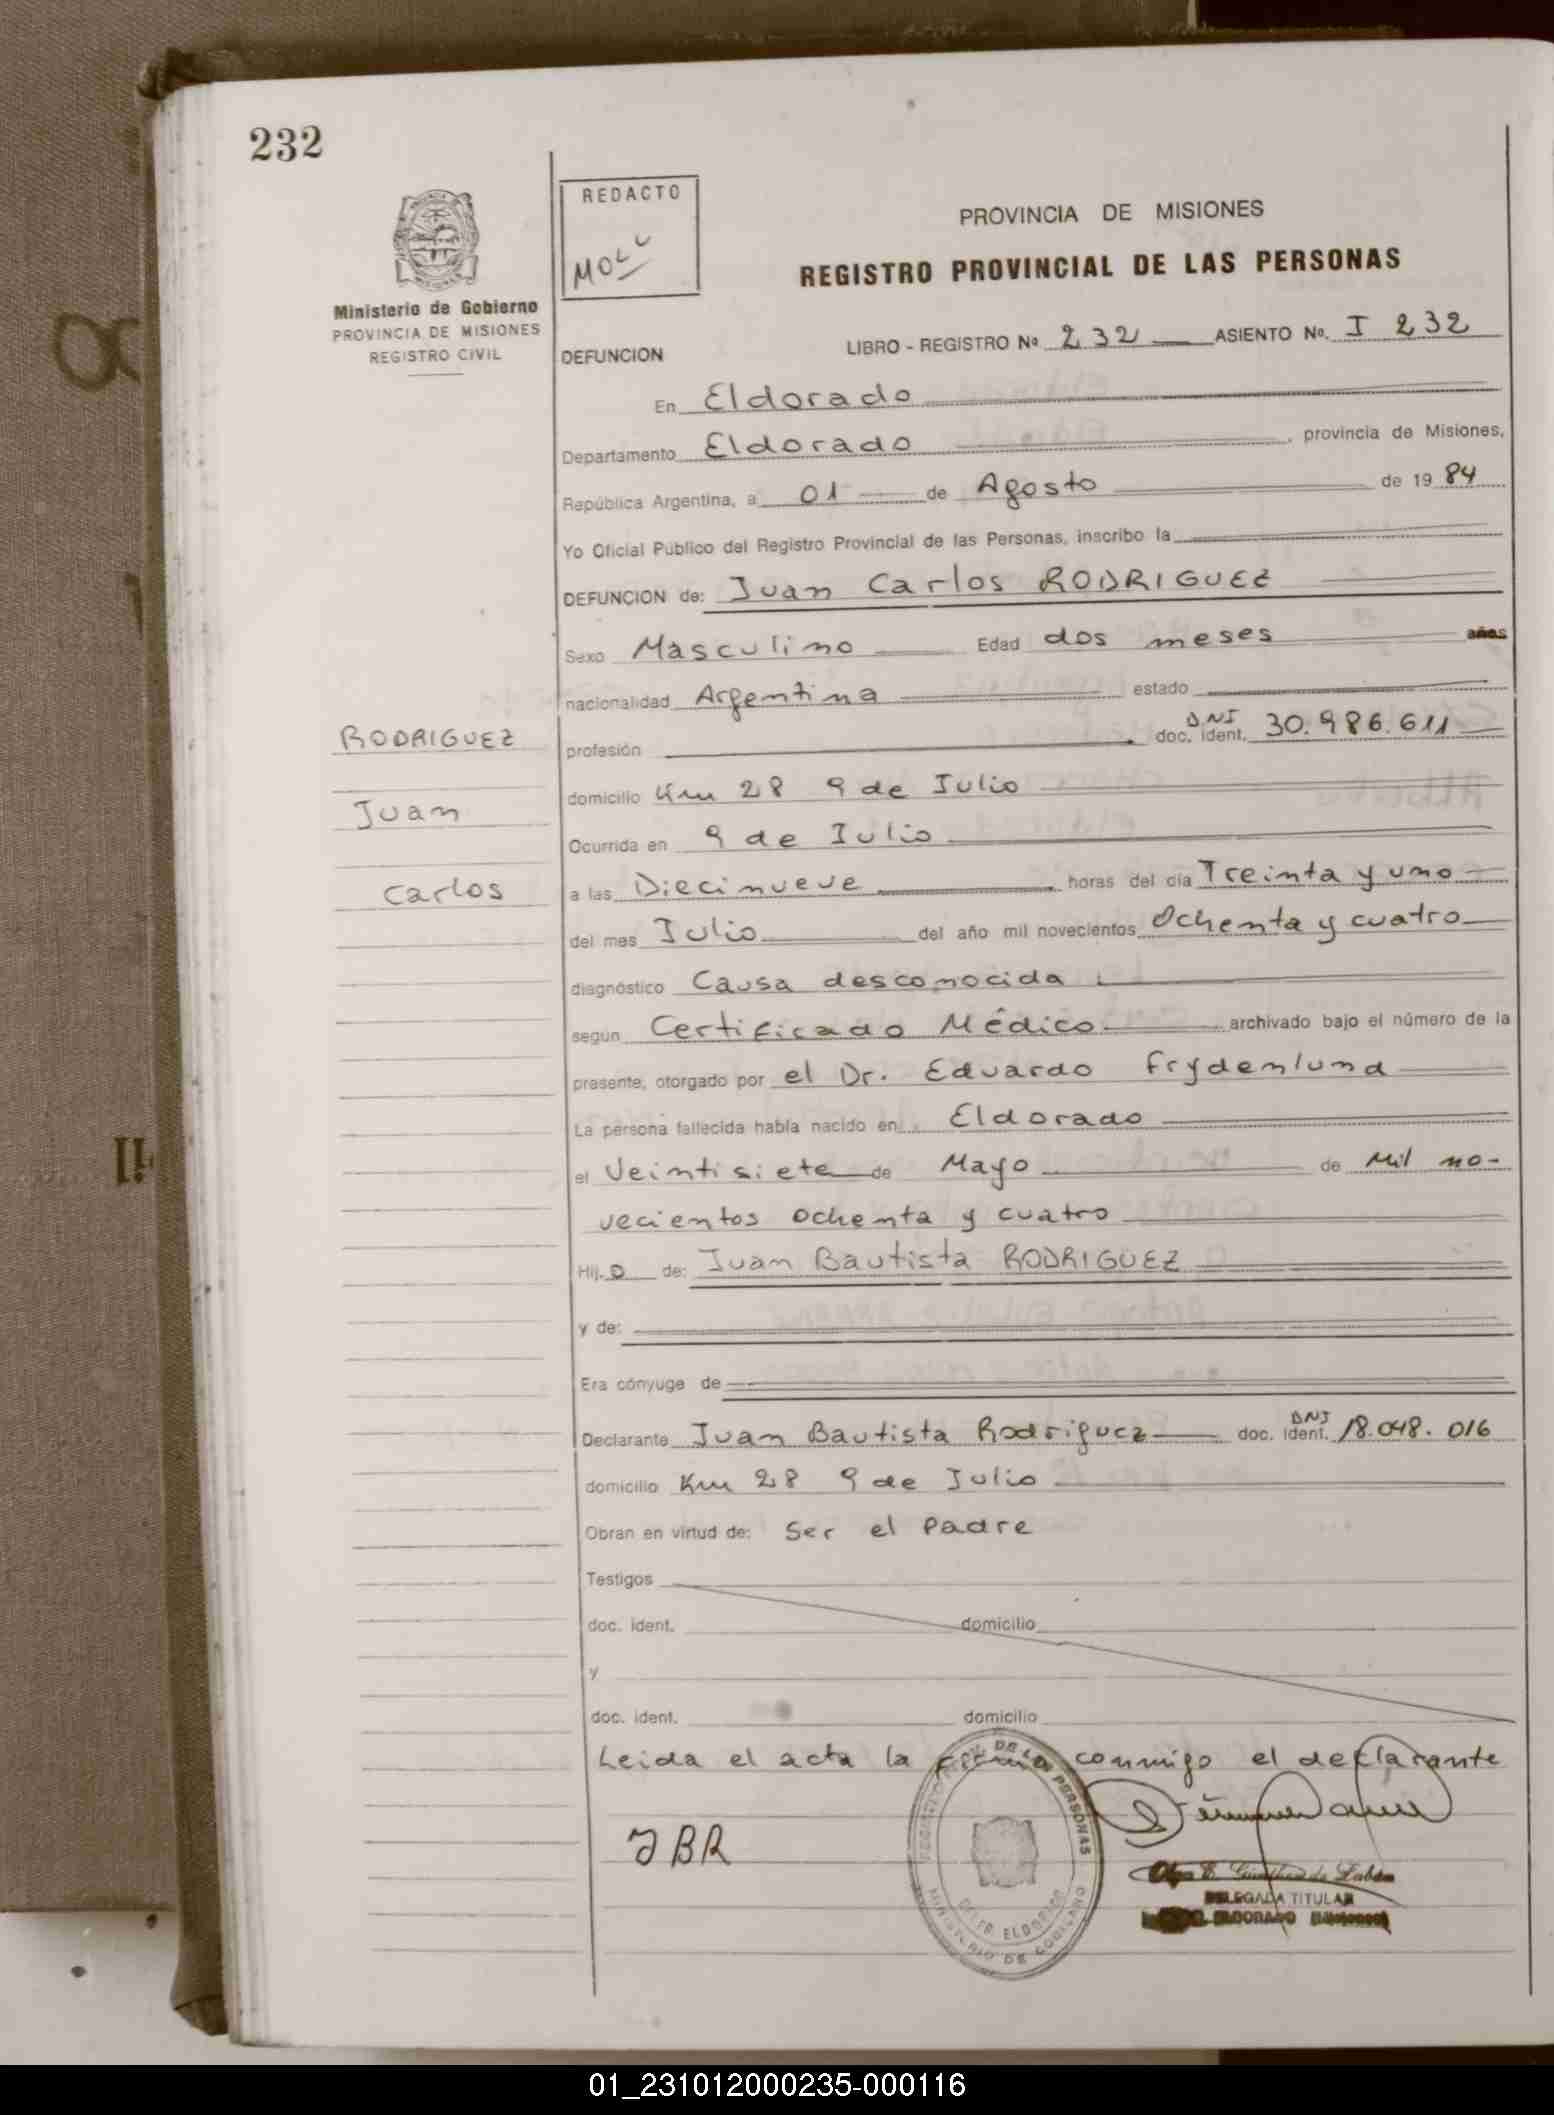 232
REDACTO
MOLL
Ministerio de Gobierno
PROVINCIA DE MISIONES
REGISTRO CIVIL
PROVINCIA DE MISIONES
REGISTRO PROVINCIAL DE LAS PERSONAS
DEFUNCION LIBRO - REGISTRO Nº 232 ASIENTO Nº. I 232
En Eldorado
Departamento Eldorado, provincia de Misiones,
República Argentina, a 01 de Agosto de 1984
Yo Oficial Público del Registro Provincial de las Personas, inscribo la
DEFUNCION de: Juan Carlos RODRIGUEZ
Sexo Masculino Edad dos meses años
nacionalidad Argentina estado
profesión doc. ident. DNI 30.986.611
domicilio Km 28 9 de Julio
Ocurrida en 9 de Julio
a las Diecinueve horas del día Treinta y uno
del mes Julio del año mil novecientos Ochenta y cuatro
diagnóstico Causa desconocida
según Certificado Médico archivado bajo el número de la
presente, otorgado por el Dr. Eduardo Frydenlund
La persona fallecida había nacido en Eldorado
el Veintisiete de Mayo de Mil no-
vecientos ochenta y cuatro
Hij.o de: Juan Bautista RODRIGUEZ
y de:
Era cónyuge de
Declarante Juan Bautista Rodriguez doc. ident. DNI 18.048.016
domicilio Km 28 9 de Julio
Obran en virtud de: Ser el Padre
Testigos
doc. ident. domicilio
y
doc. ident. domicilio
Leida el acta la firma conmigo el declarante
JBR
RODRIGUEZ
Juan
Carlos
DE LAS PERSONAS
ELDORADO
MINISTERIO DE GOBIERNO
DELEGADA TITULAR
ELDORADO (Misiones)
01_231012000235-000116